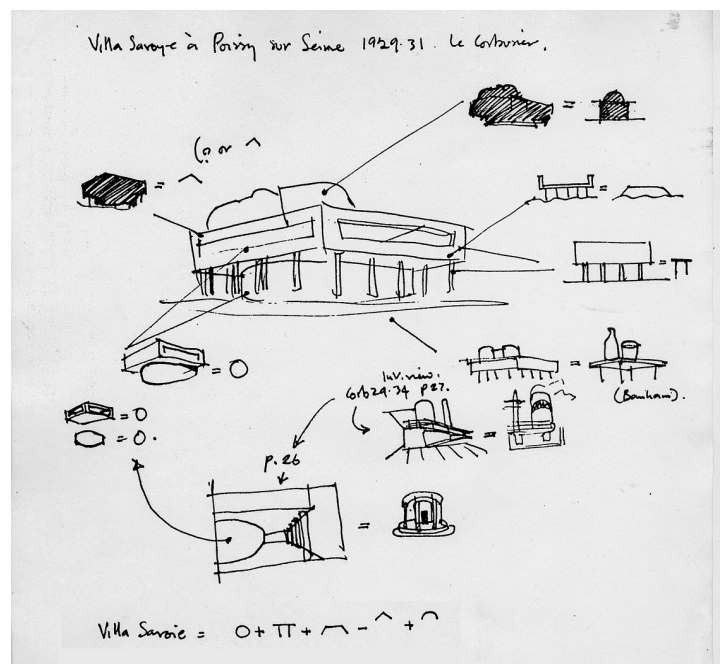 Villa Savoye à Poissy sur Seine 1929.31. Le Corbusier.
(? or ^
= ^
=
=
= π
= O
=
(Banham).
= O
= O.
Inv. view.
Corb 29.34 p27.
=
p.26
=
Villa Savoie = O + π + ⌒ - ^ + ∩